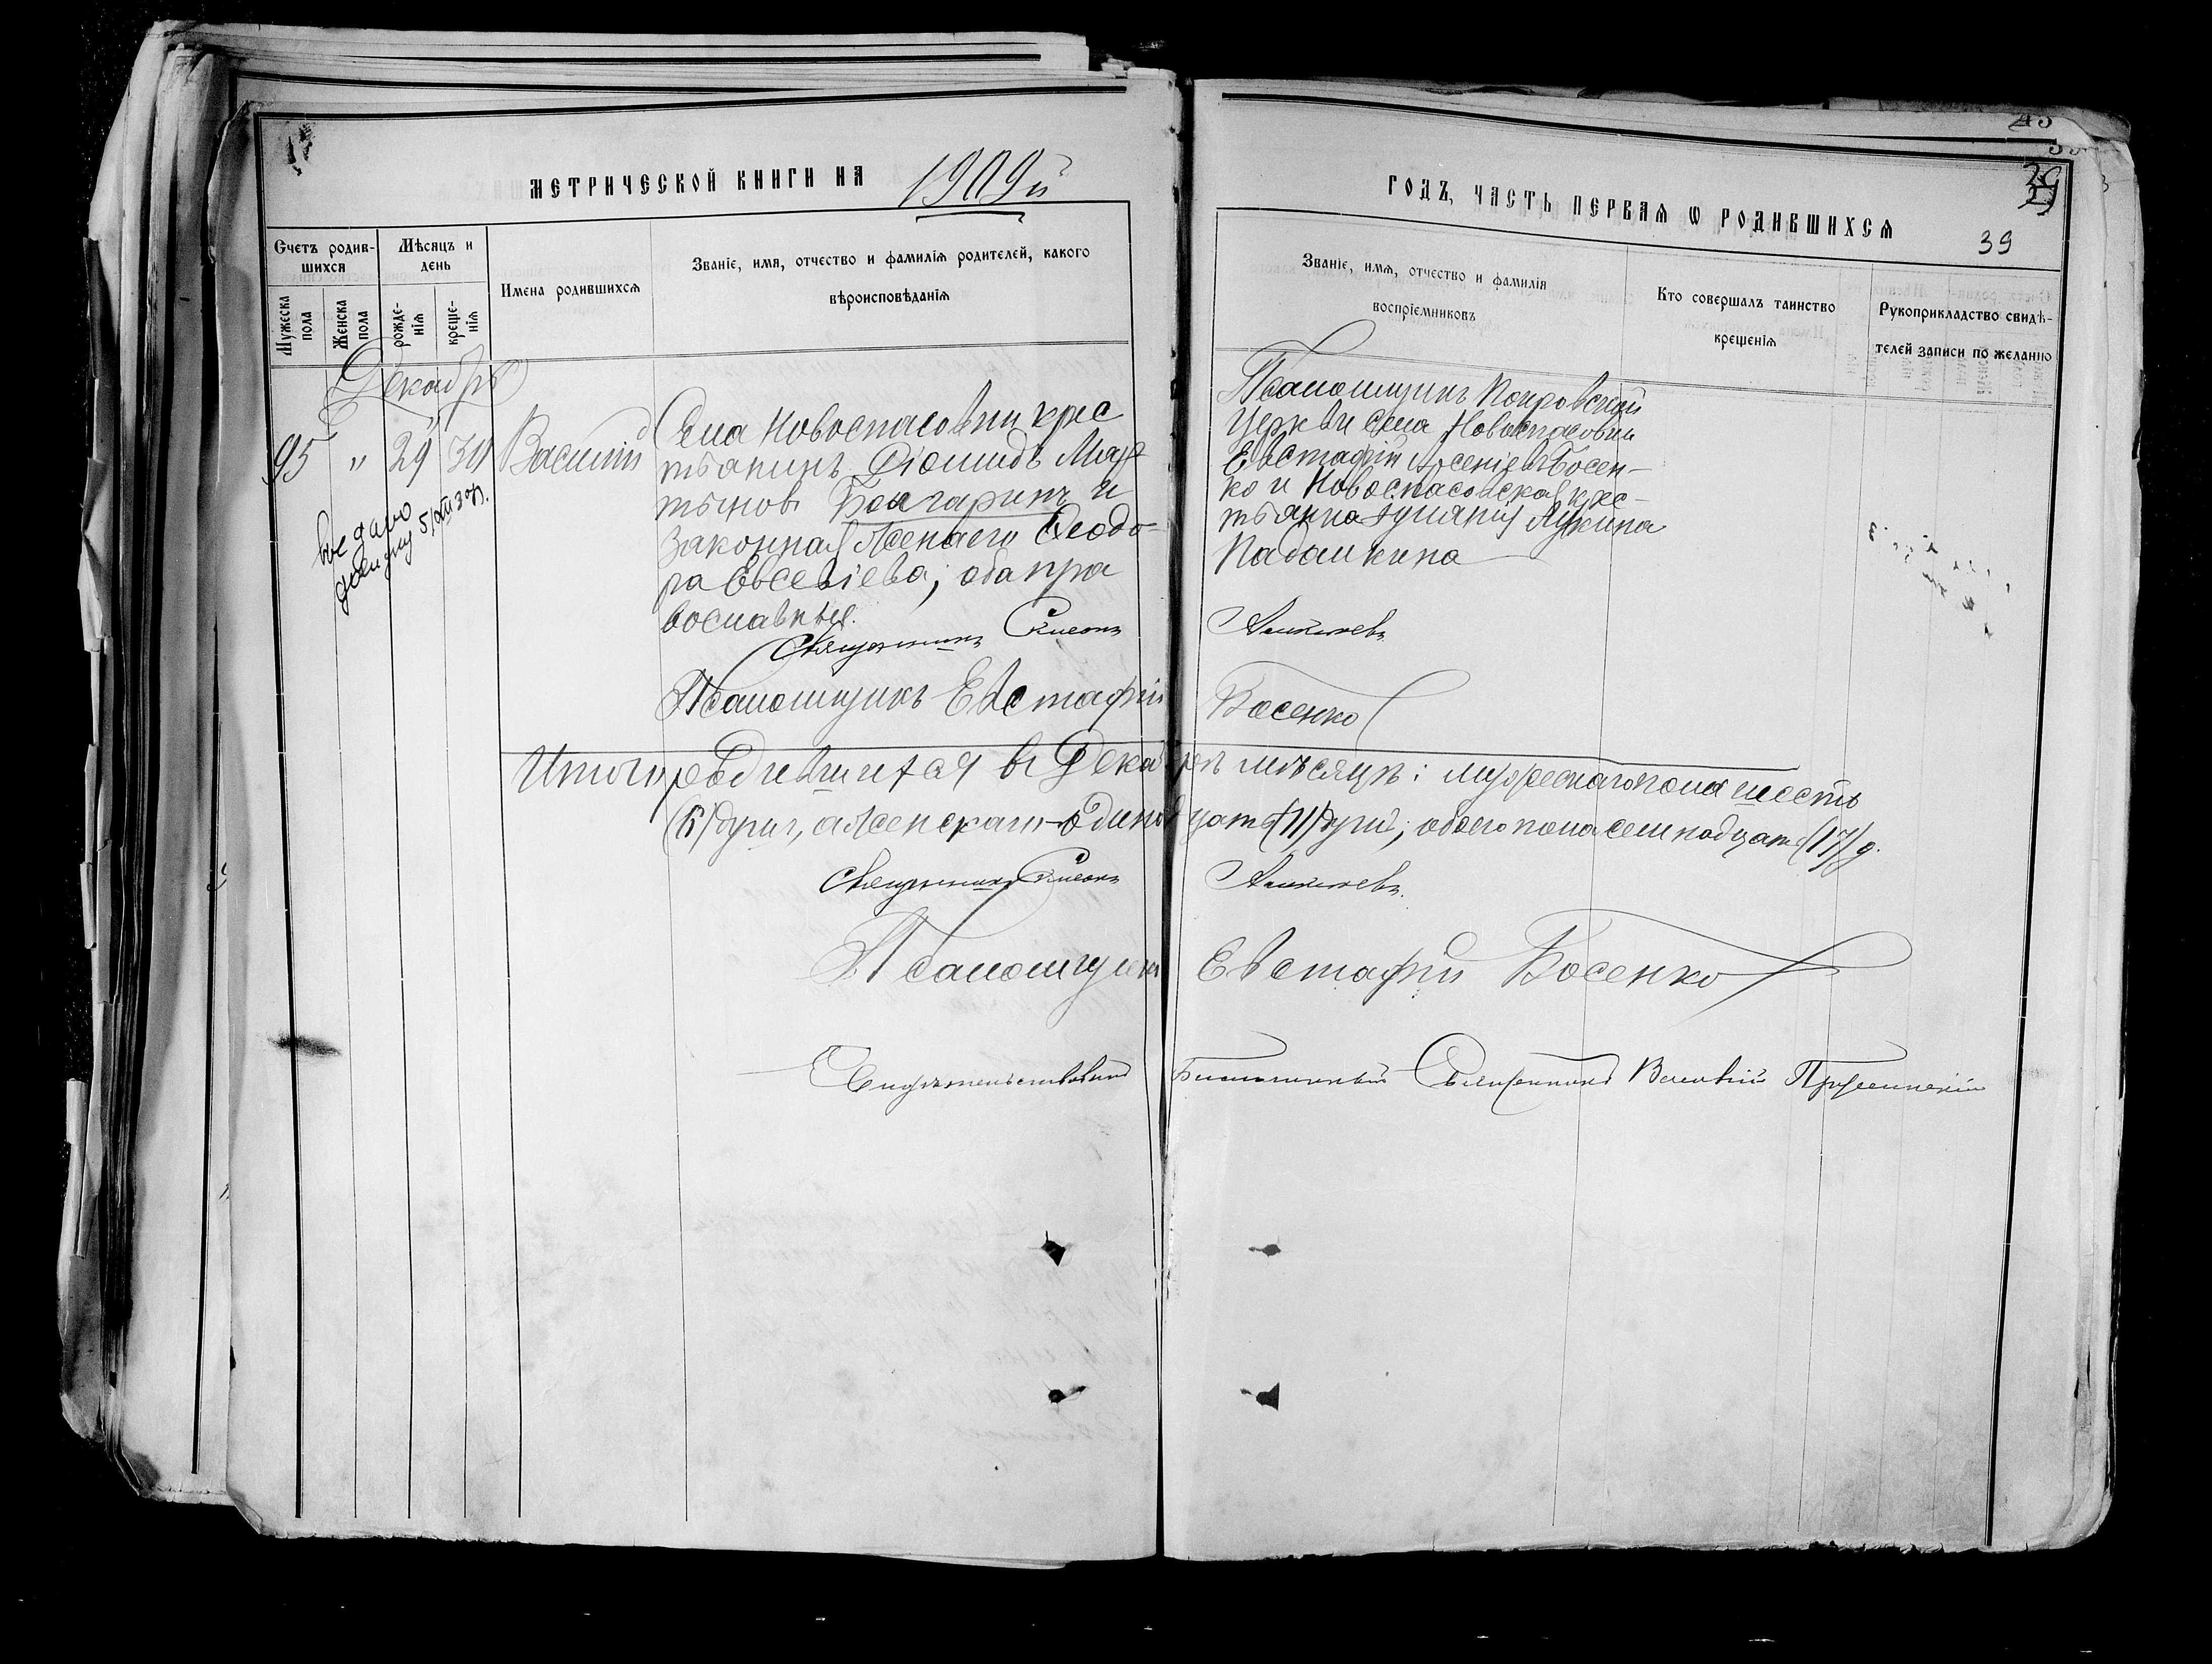 МЕТРИЧЕСКОЙ КНИГИ НА 1909й
ГОДЪ, ЧАСТЬ ПЕРВАЯ Ѡ РОДИВШИХСЯ
39
Счетъ родив-
шихся
Мужеска
пола
Женска
пола
Мѣсяцъ и
день
рожде-
нія
креще-
нія
Имена родившихся
Званіе, имя, отчество и фамилія родителей, какого
вѣроисповѣданія
Званіе, имя, отчество и фамилія
воспріемниковъ
Кто совершалъ таинство
крещенія
Рукоприкладство свидѣ-
телей записи по желанію
Декабрь
95 " 29 30 Василій
Села Новоспасовки крес
тьянинъ Діомидъ Мар
тыновъ Болгаринъ и
законная жена его Ѳеодо-
ра Евсевіева; оба пра
вославные.
Псаломщикъ Покровской
Церкви села Новоспасовки
Евстафій Арсеніевъ Босен-
ко и Новоспасовская крес-
тьянка Іуліанія Лукина
Падалкина
Священникъ Симеонъ
Псаломщикъ Евстафій Босенко
Итого родившихся въ Декабрѣ мѣсяцѣ: мужескаго пола шесть
(6) душъ, а женскаго - одинадцать (11) душъ; обоего пола семнадцать (17) д.
Священникъ Симеонъ
Псаломщикъ Евстафій Босенко
Свидѣтельствовалъ Благочинный Священникъ Василій